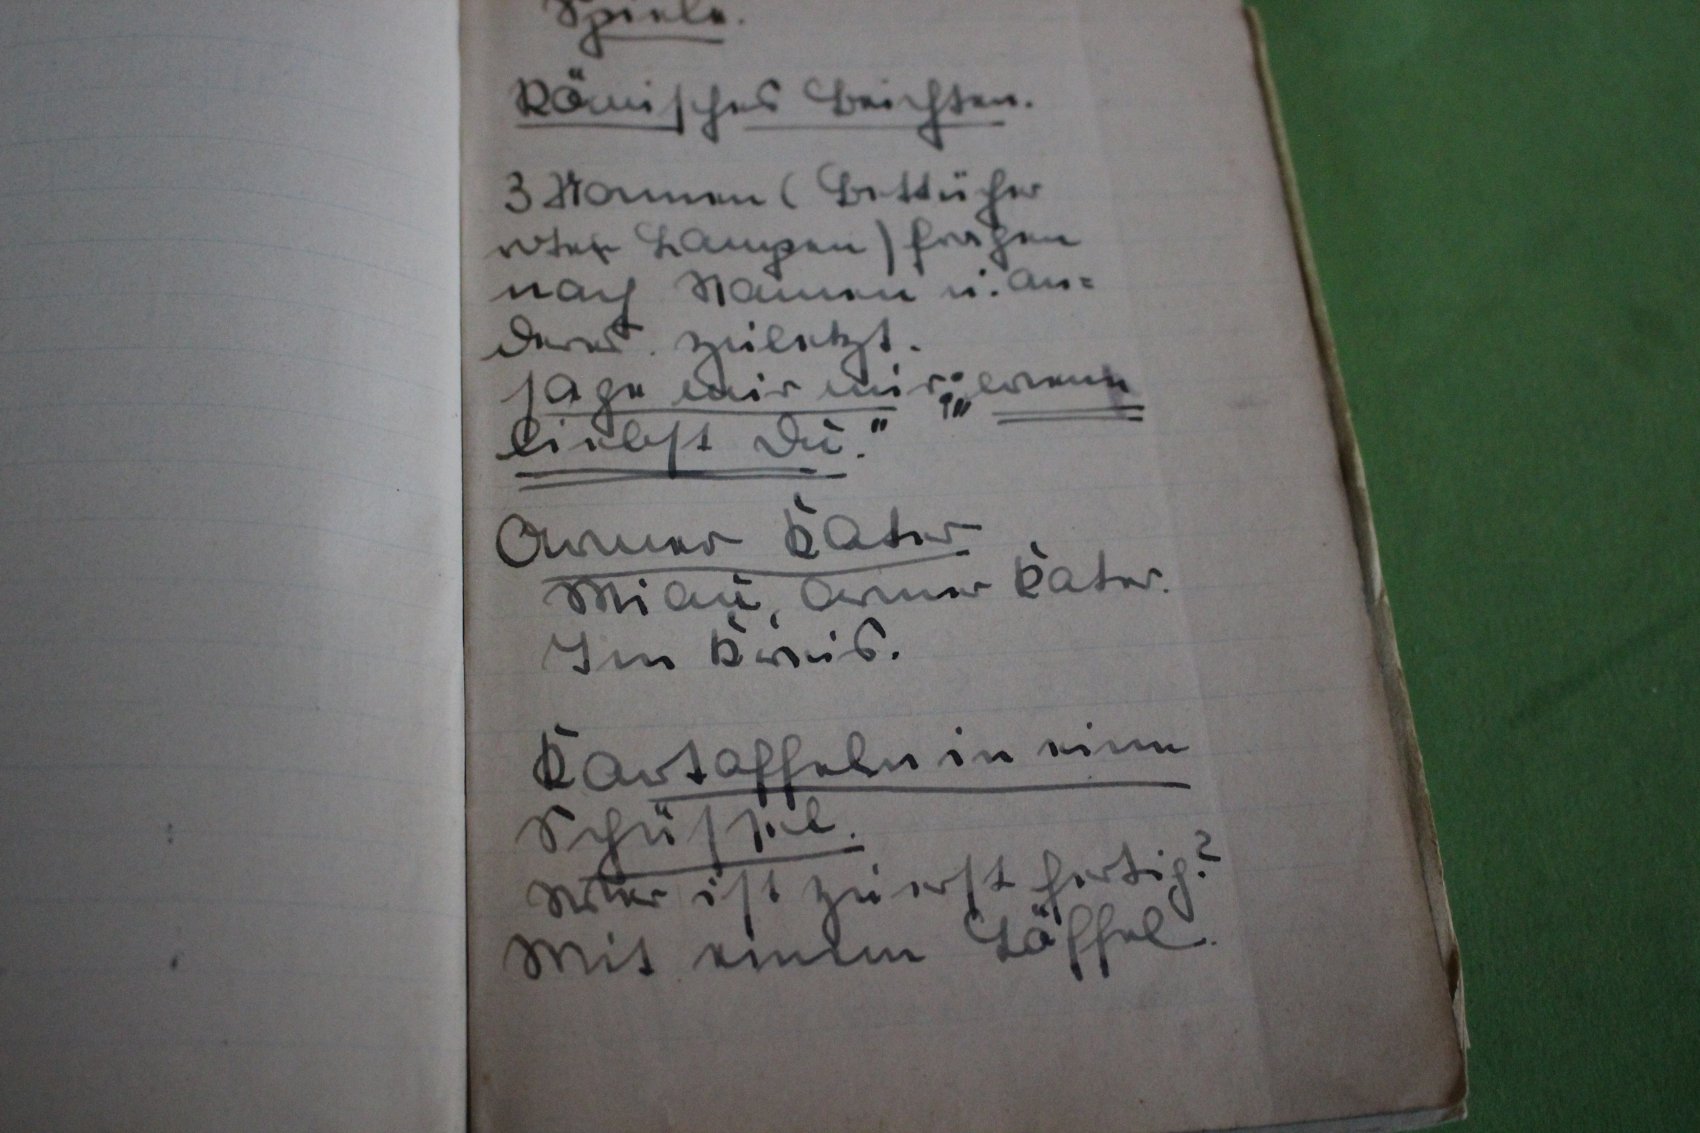 Spiele.
Römisches Beichten.
3 Nonnen (Bettücher
roten Lampen) fragen
nach Namen u. an=
deres. zuletzt.
sage mir nur: "wenn
liebst Du."
Armer Kater
Miau, armer Kater.
Im Kreis.
Kartoffeln in eine
Schüssel.
Wer ist zuerst fertig?
Mit einem Löffel.